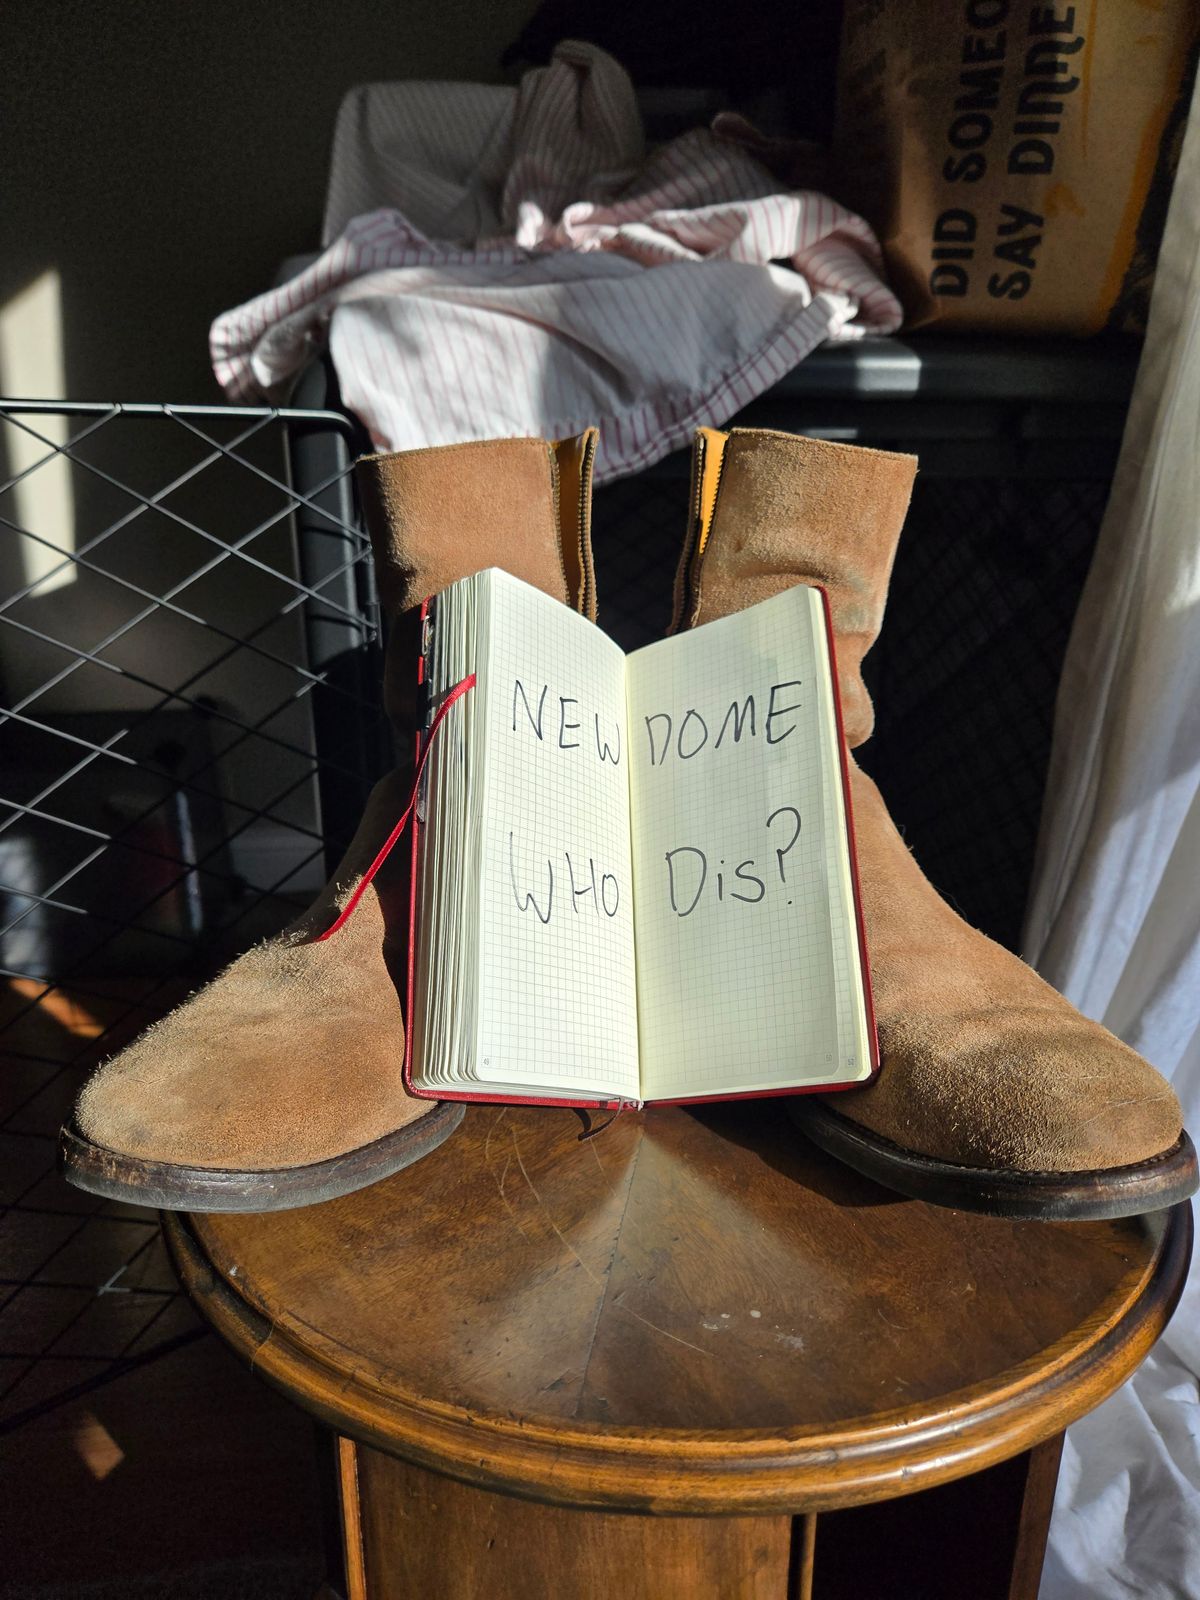 DID SOMEO
SAY DINNE
NEW DOME
WHO Dis?
49
50
52